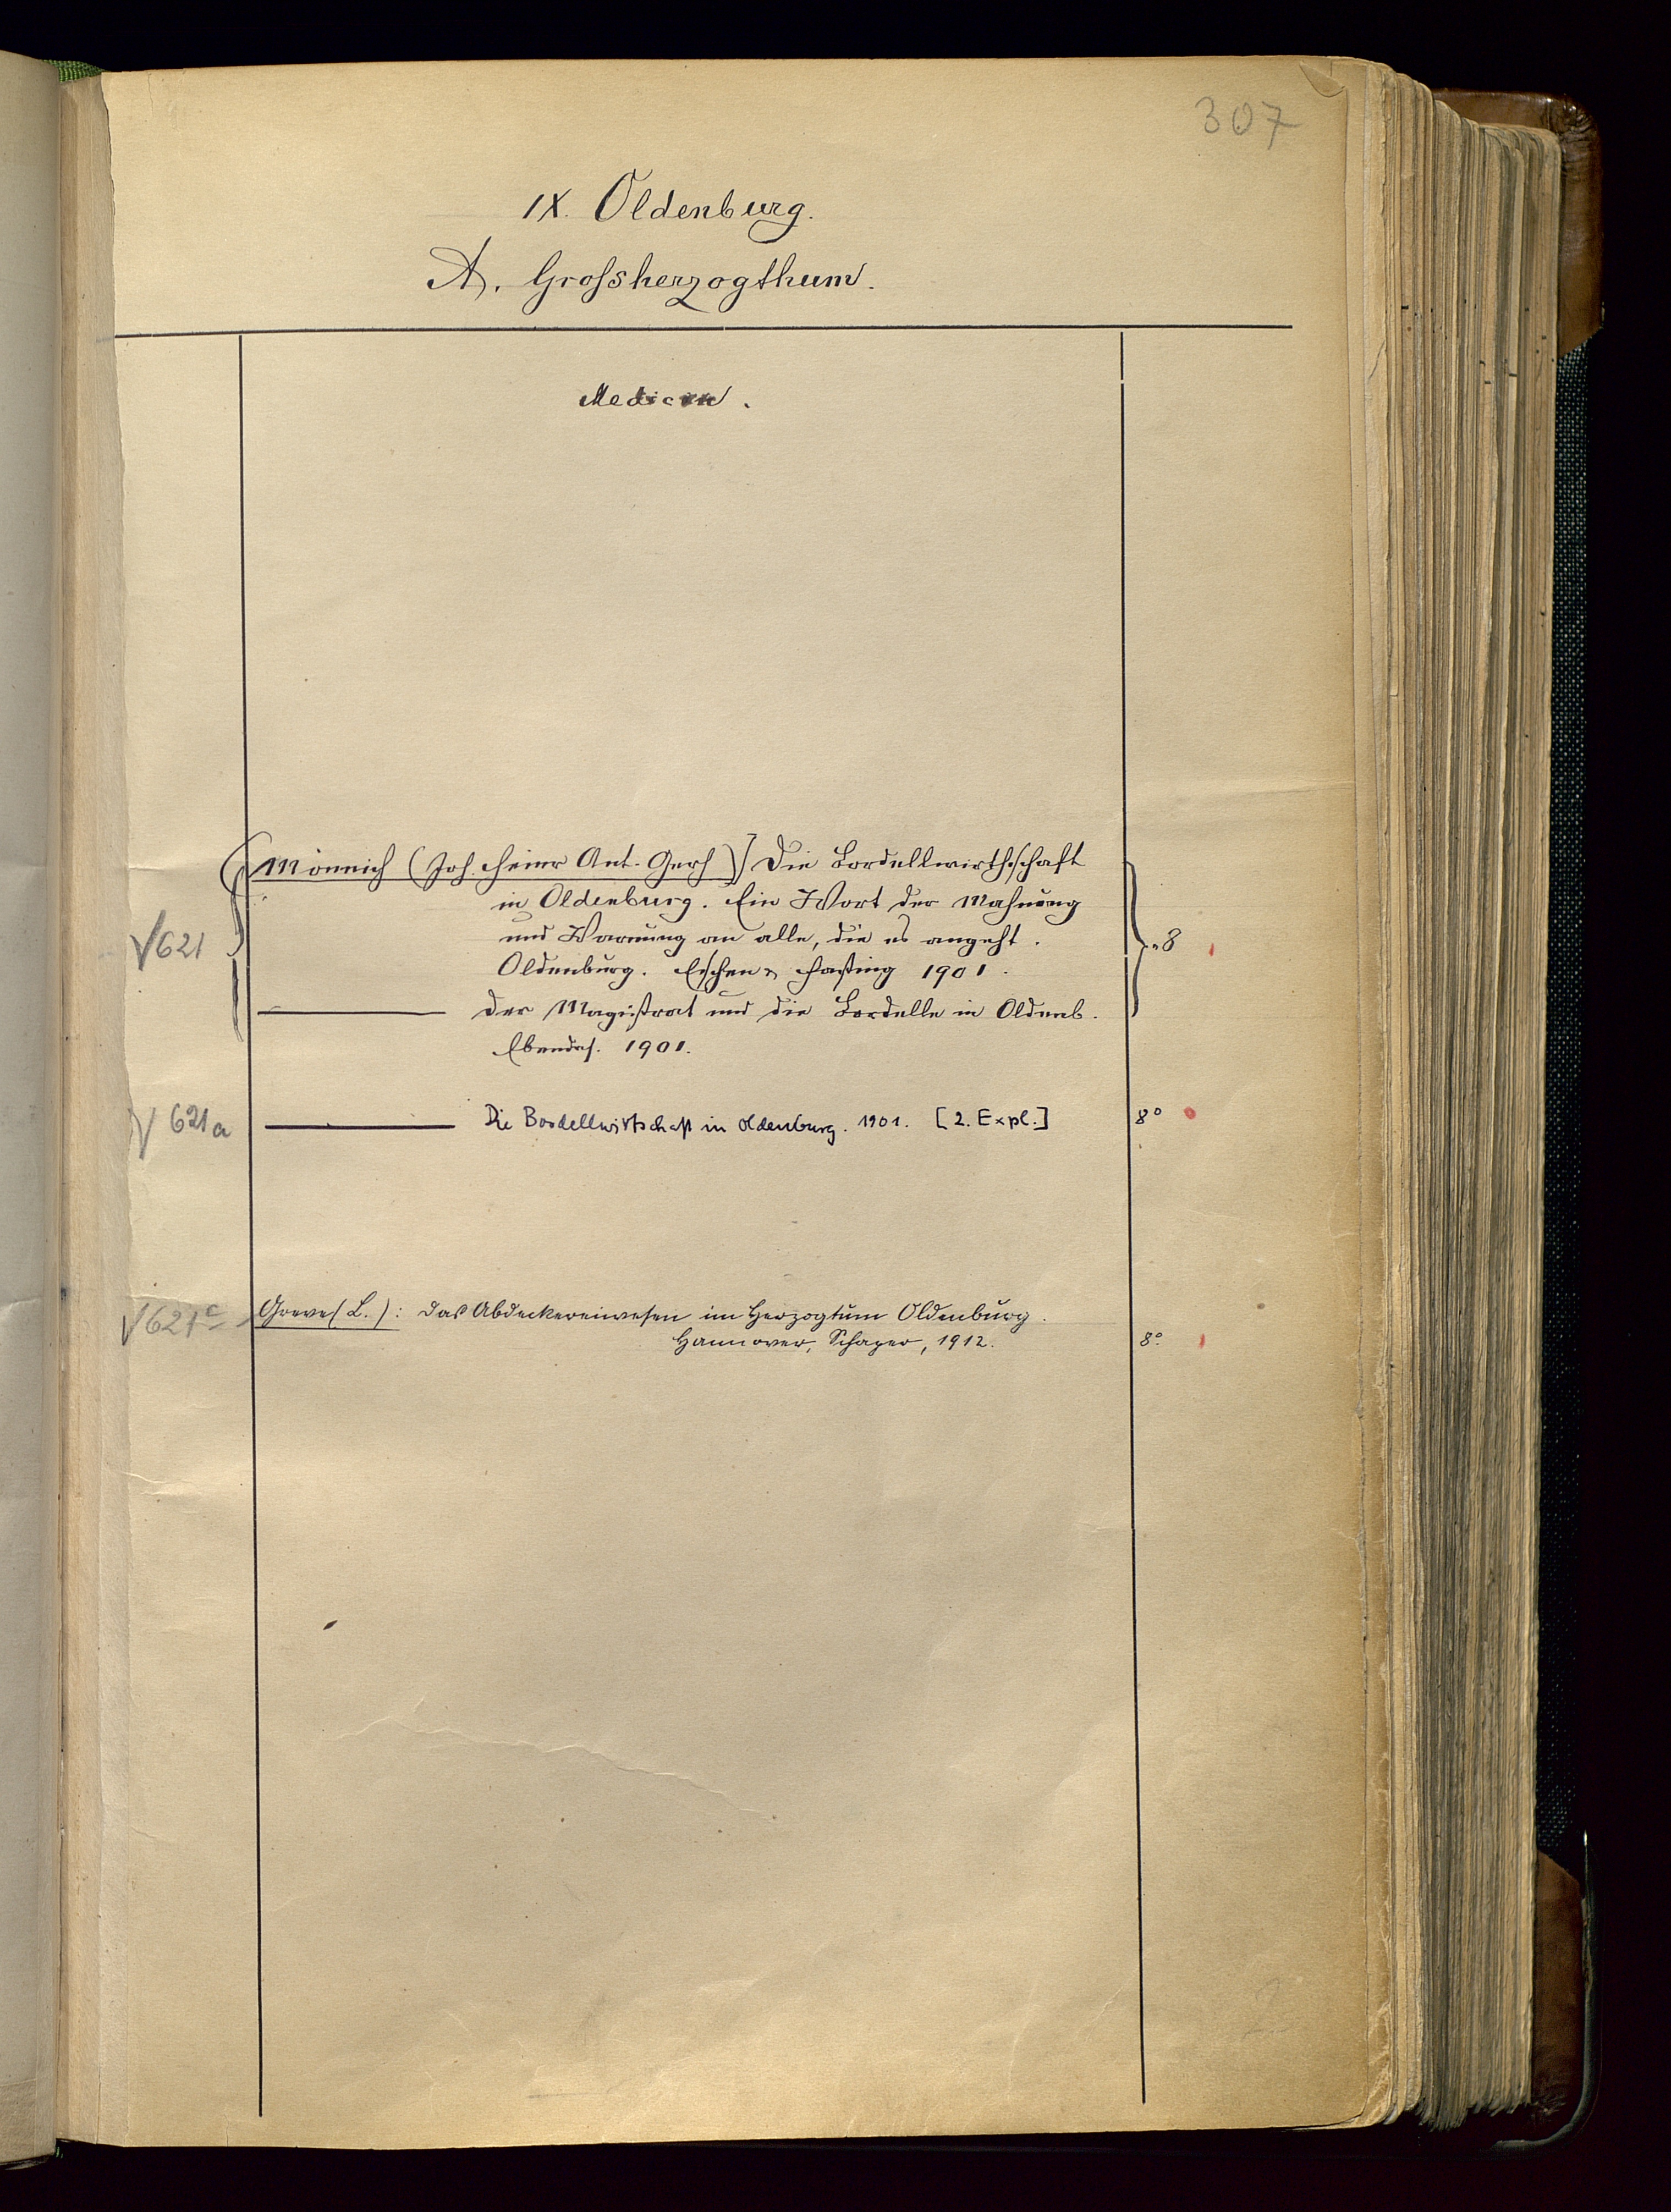 307
IX. Oldenburg.
A. Grossherzogthum.
Medicin.
[Mönnich (Joh. Heinr. Ant. Gerh)] Die Bordellwirthschaft
in Oldenburg. Ein Wort der Mahnung
und Warnung an alle, die es angeht.
√621
Oldenburg. Eschen & Fasting 1901.
8
——— Der Magistrat und die Bordelle in Oldenb.
Ebendas. 1901.
√ 621a ——— Die Bordellwirtschaft in Oldenburg. 1901. [2. Expl.] 8°
√621c Greve (L.): Das Abdeckereiwesen im Herzogtum Oldenburg.
Hannover, Schaper, 1912. 8°